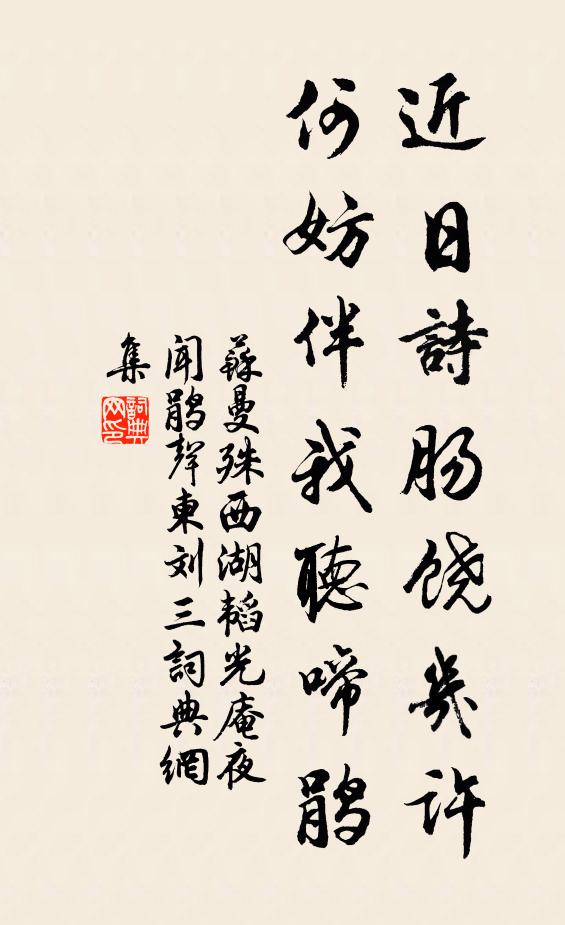 近日詩肠饶幾许
何妨伴我聽啼鹃
蘇曼殊西湖韬光庵夜
闻鹃聲柬刘三詞典網
集
詞典
网印